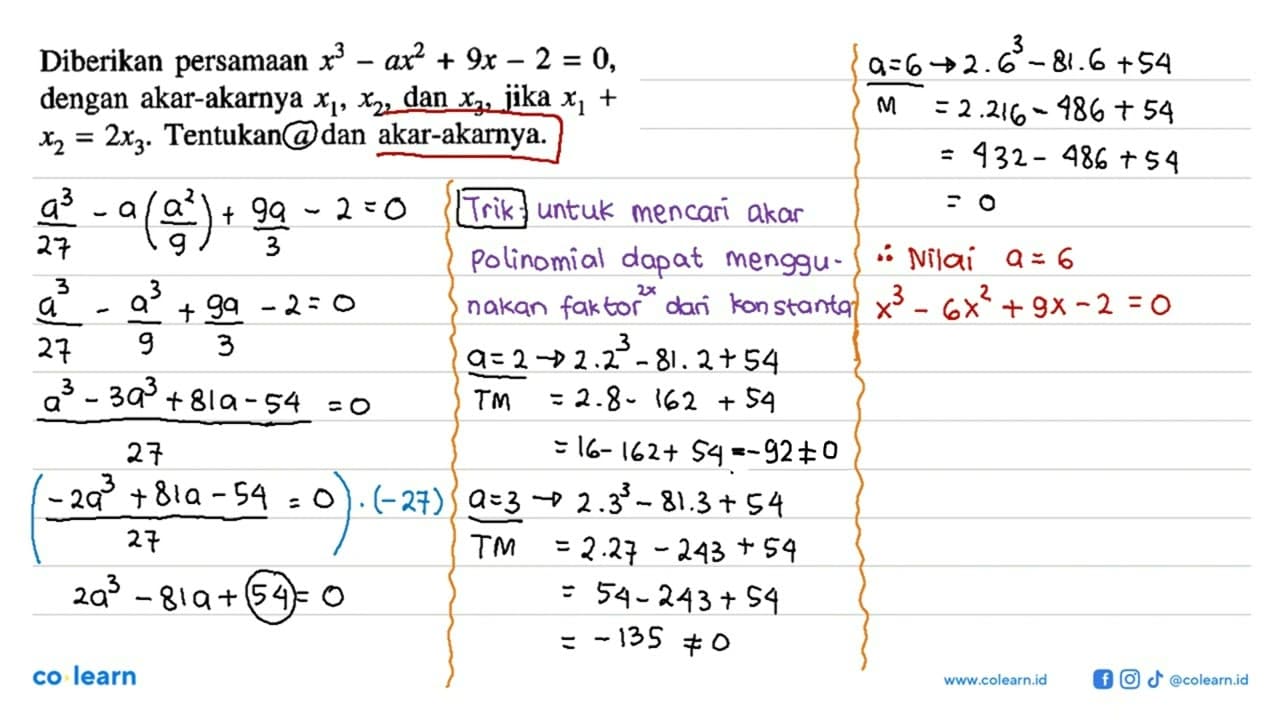 Diberikan persamaan x³ − ax² + 9x − 2 = 0,
dengan akar-akarnya x₁, x₂, dan x₃, jika x₁ +
x₂ = 2x₃. Tentukan a dan akar-akarnya.
a³/27 - a(a²/9) + 9a/3 - 2 = 0
a³/27 - a³/9 + 9a/3 - 2 = 0
(a³ - 3a³ + 81a - 54)/27 = 0
((-2a³ + 81a - 54)/27 = 0) . (-27)
2a³ - 81a + 54 = 0
Trik: untuk mencari akar
polinomial dapat menggu-
nakan faktor²ˣ dari konstanta
a = 2 → 2.2³ - 81.2 + 54
TM = 2.8 - 162 + 54
= 16 - 162 + 54 = -92 ≠ 0
a = 3 → 2.3³ - 81.3 + 54
TM = 2.27 - 243 + 54
= 54 - 243 + 54
= -135 ≠ 0
a = 6 → 2.6³ - 81.6 + 54
M = 2.216 - 486 + 54
= 432 - 486 + 54
= 0
∴ Nilai a = 6
x³ - 6x² + 9x - 2 = 0
co learn
www.colearn.id
@colearn.id